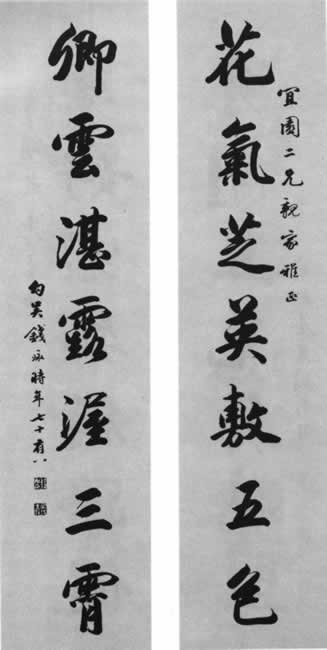 宜園二兄親家雅正
花氣芝英敷五色
卿雲湛露渥三霄
勾吳錢泳時年七十有八